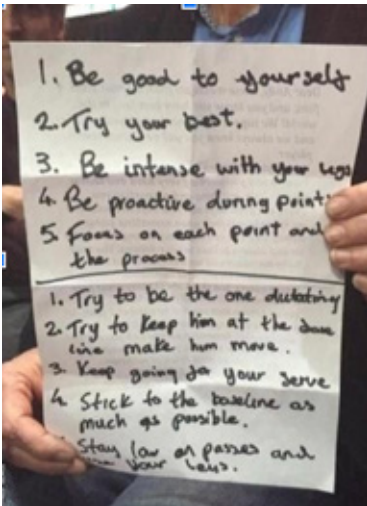 1. Be good to yourself
2. Try your best.
3. Be intense with your legs
4. Be proactive during points
5. Focus on each point and
the process
1. Try to be the one dictating
2. Try to keep him at the base
line make him move.
3. Keep going for your serve
4. Stick to the baseline as
much as possible.
Stay low on passes and
use your legs.